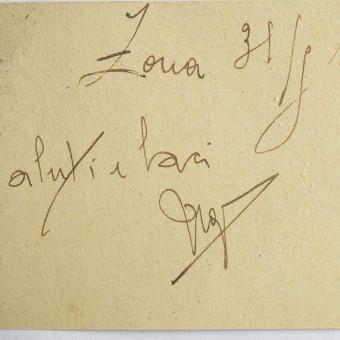 Zona 31
aluti e baci